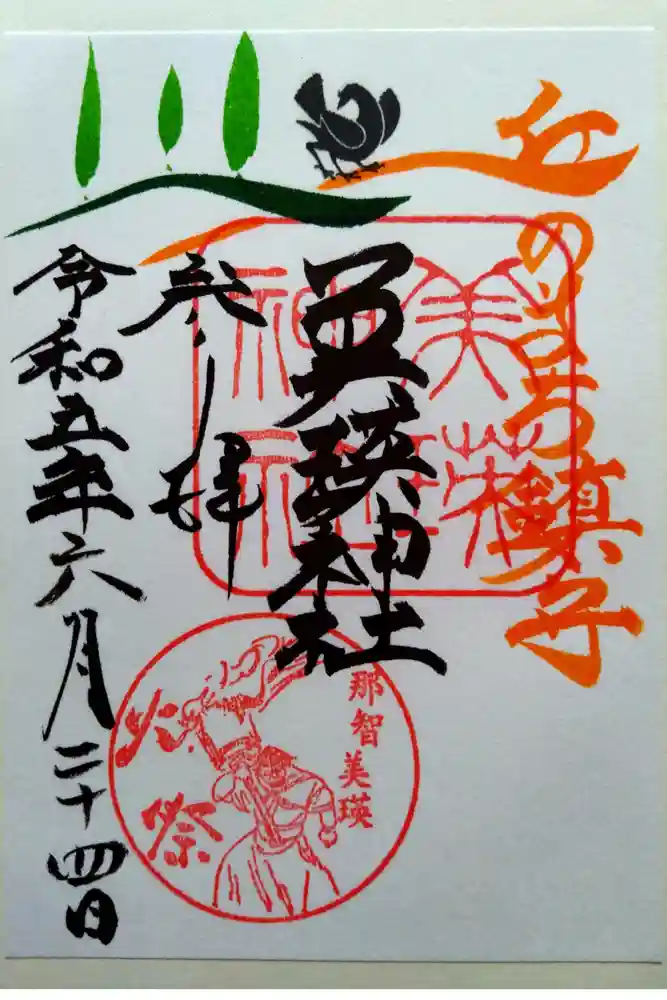 丘のまち鎮守
美瑛神社
美瑛
神社
参拝
令和五年六月二十四日
那智美瑛
火祭